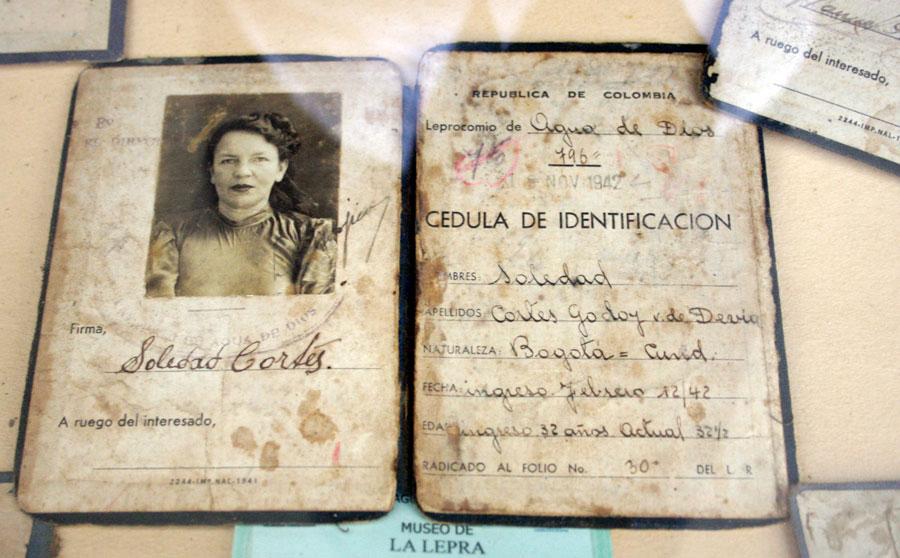 EL DIREC
Firma,
AGUA DE DIOS
Soledad Cortés.
A ruego del interesado,
2244-IMP.NAL-1941
REPUBLICA DE COLOMBIA
Leprocomio de Agua de Dios
796=
NOV 1942
CEDULA DE IDENTIFICACION
MBRES: Soledad
APELLIDOS: Cortes Godoy v. de Devia
NATURALEZA: Bogota = Cund.
FECHA: ingreso Febrero 12/42
EDA ingreso 32 años Actual 32½
RADICADO AL FOLIO No. 30 DEL L R
A ruego del interesado,
2244-IMP.NAL-1
MUSEO DE
LA LEPRA